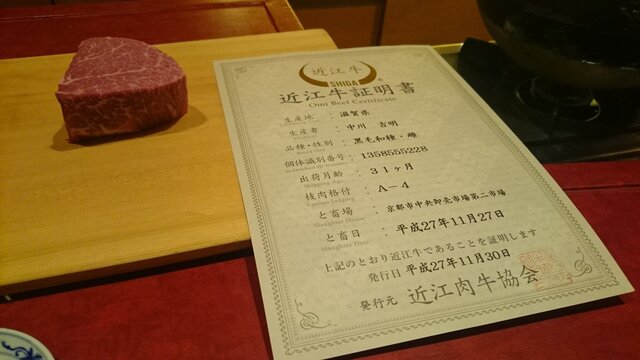 近江牛
SHIGA
®
近江牛証明書
Omi Beef Certificate
生産地 : 滋賀県
生産者 : 中川 吉明
品種・性別 : 黒毛和種・雌
個体識別番号 : 1358555228
出荷月齢 : 31ヶ月
Shipping Age
枝肉格付 : A-4
Carcass Judging
と畜場 : 京都市中央卸売市場第二市場
Slaughter House
と畜日 : 平成27年11月27日
Slaughter Date
上記のとおり近江牛であることを証明します
発行日 平成27年11月30日
発行元 近江肉牛協会